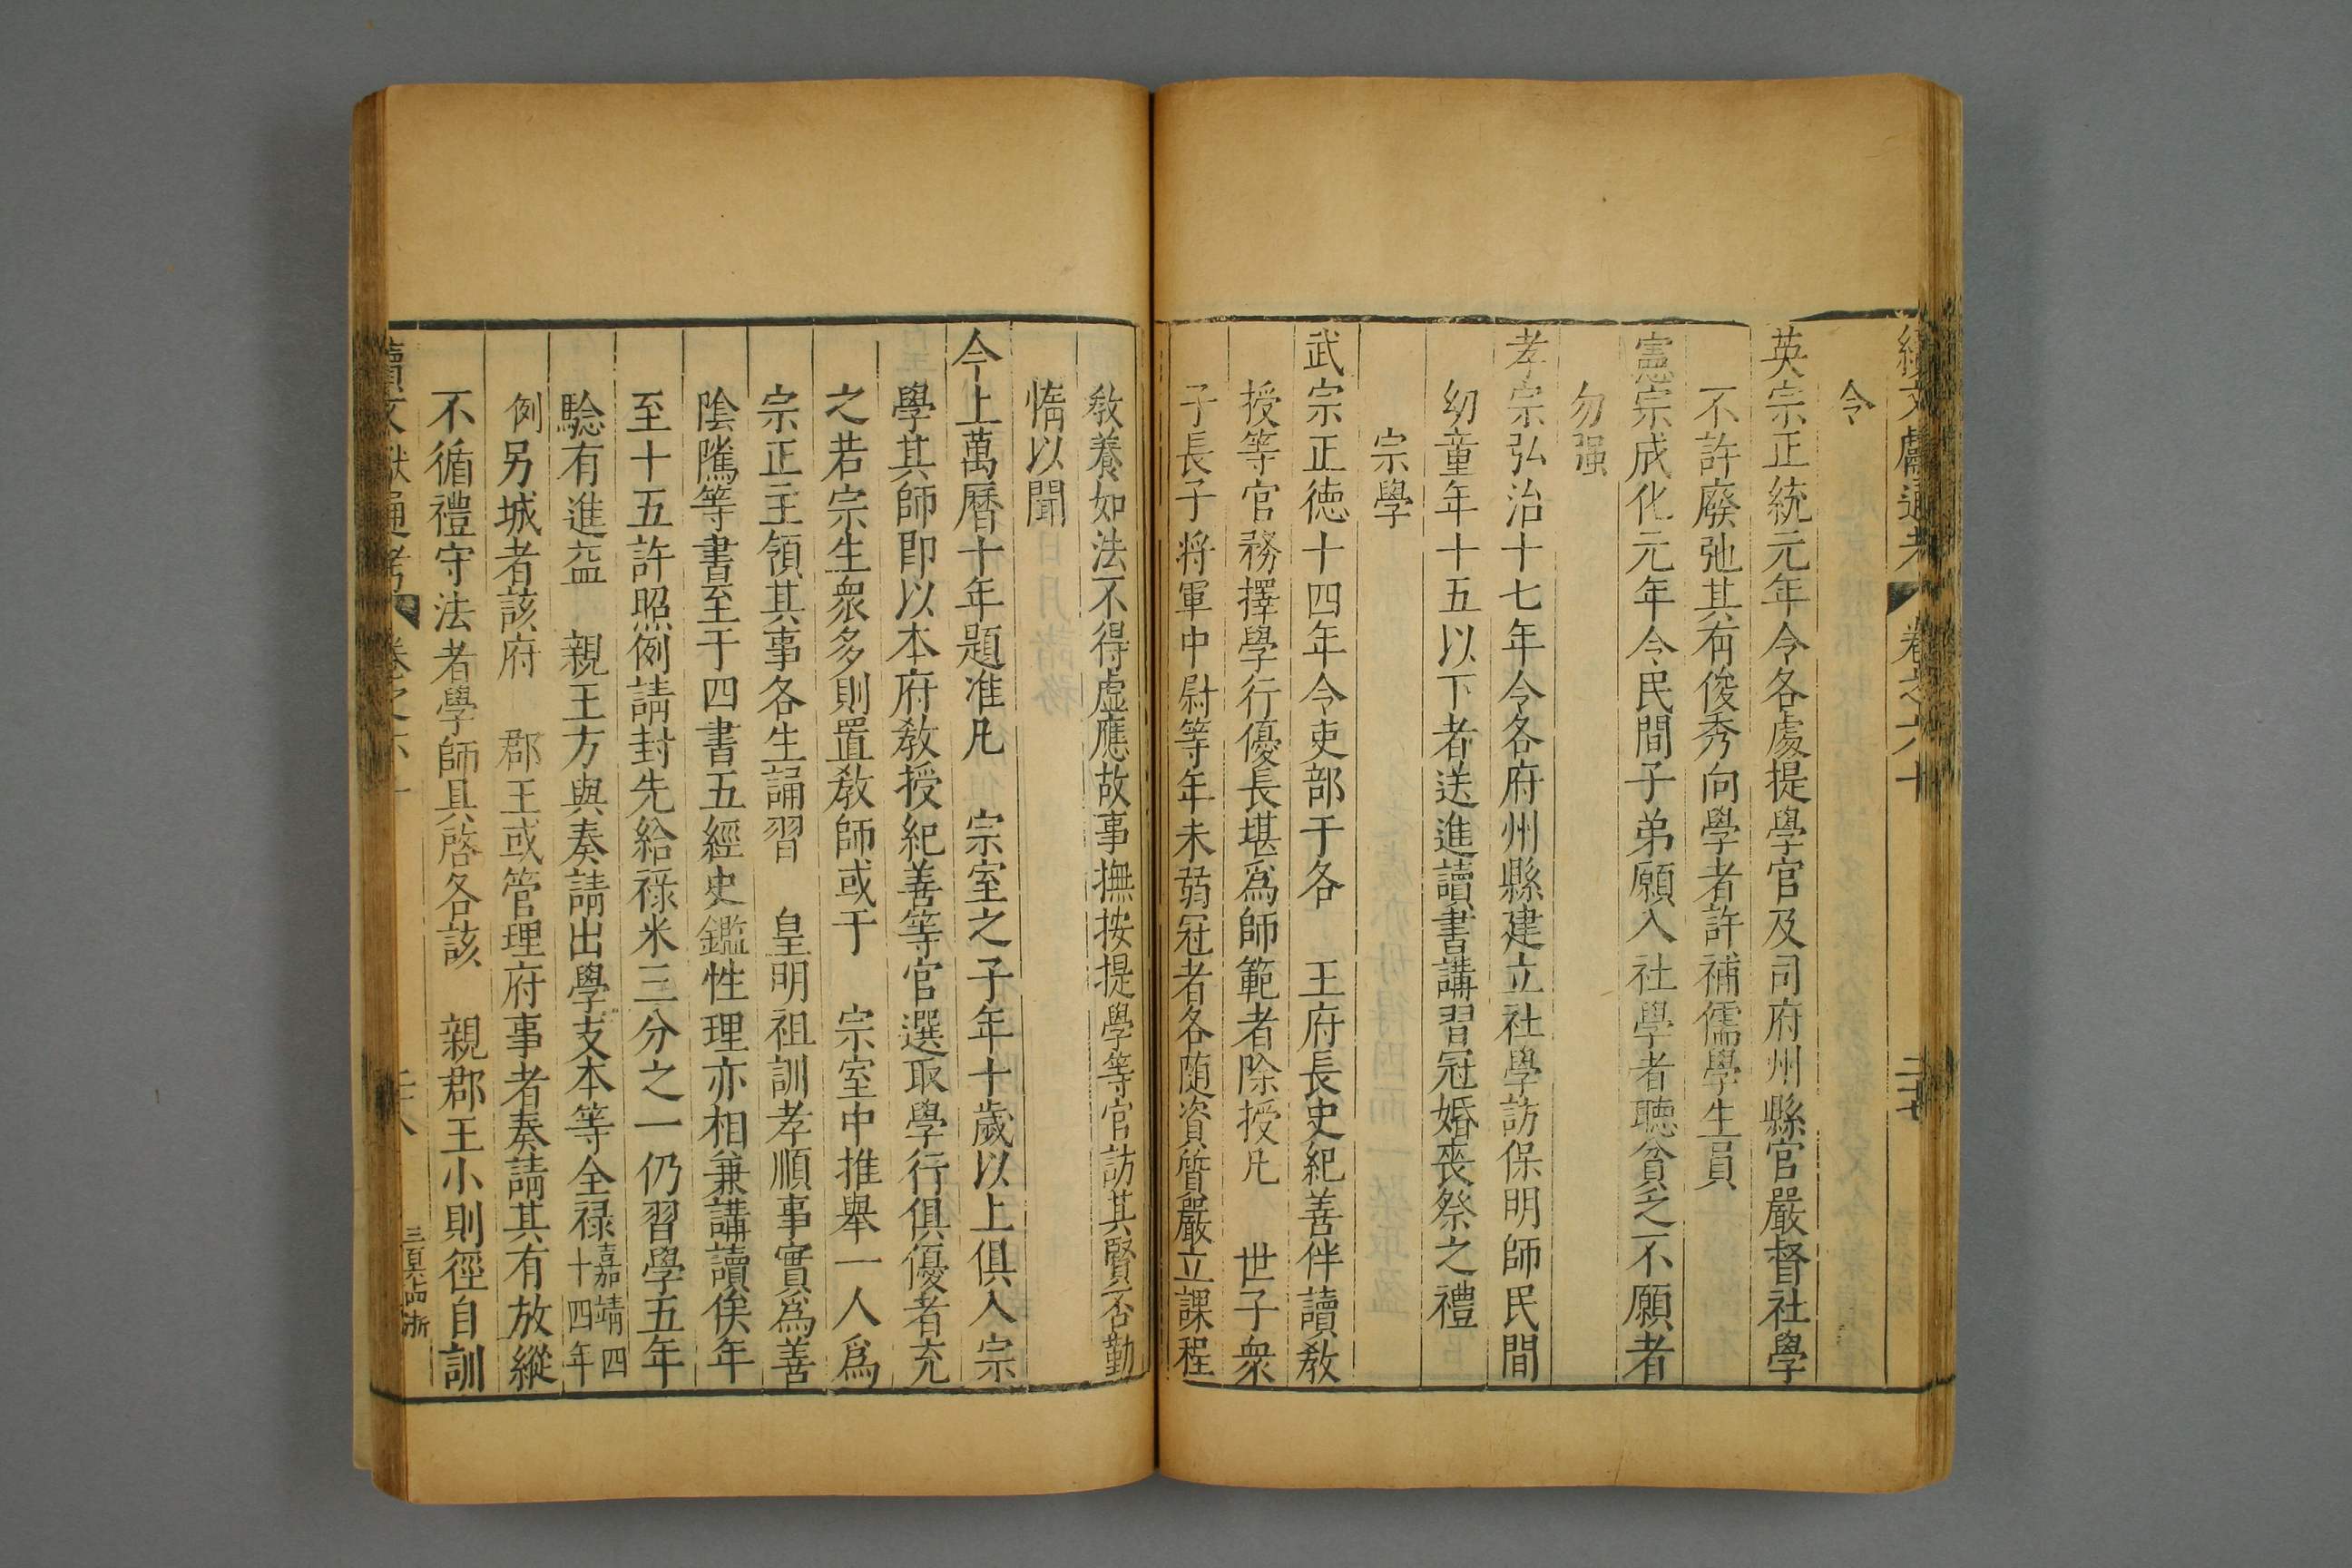 續文獻通考 卷之六十 二十七
令
英宗正統元年令各處提學官及司府州縣官嚴督社學
不許廢弛其有俊秀向學者許補儒學生員
憲宗成化元年令民間子弟願入社學者聽貧乏不願者
勿强
孝宗弘治十七年令各府州縣建立社學訪保明師民間
幼童年十五以下者送進讀書講習冠婚喪祭之禮
宗學
武宗正德十四年令吏部于各 王府長史紀善伴讀敎
授等官務擇學行優長堪爲師範者除授凡 世子衆
子長子將軍中尉等年未弱冠者各随資質嚴立課程
敎養如法不得虛應故事撫按提學等官訪其賢否勤
惰以聞
今上萬曆十年題准凡 宗室之子年十歲以上俱入宗
學其師即以本府敎授紀善等官選取學行俱優者充
之若宗生衆多則置敎師或于 宗室中推舉一人爲
宗正主領其事各生誦習 皇明祖訓孝順事實爲善
陰隲等書至于四書五經史鑑性理亦相兼講讀俟年
至十五許照例請封先給祿米三分之一仍習學五年
驗有進益 親王方與奏請出學支本等全祿嘉靖四十四年
例另城者該府 郡王或管理府事者奏請其有放縱
不循禮守法者學師具啓各該 親郡王小則徑自訓
續文獻通考 卷之六十 二十八